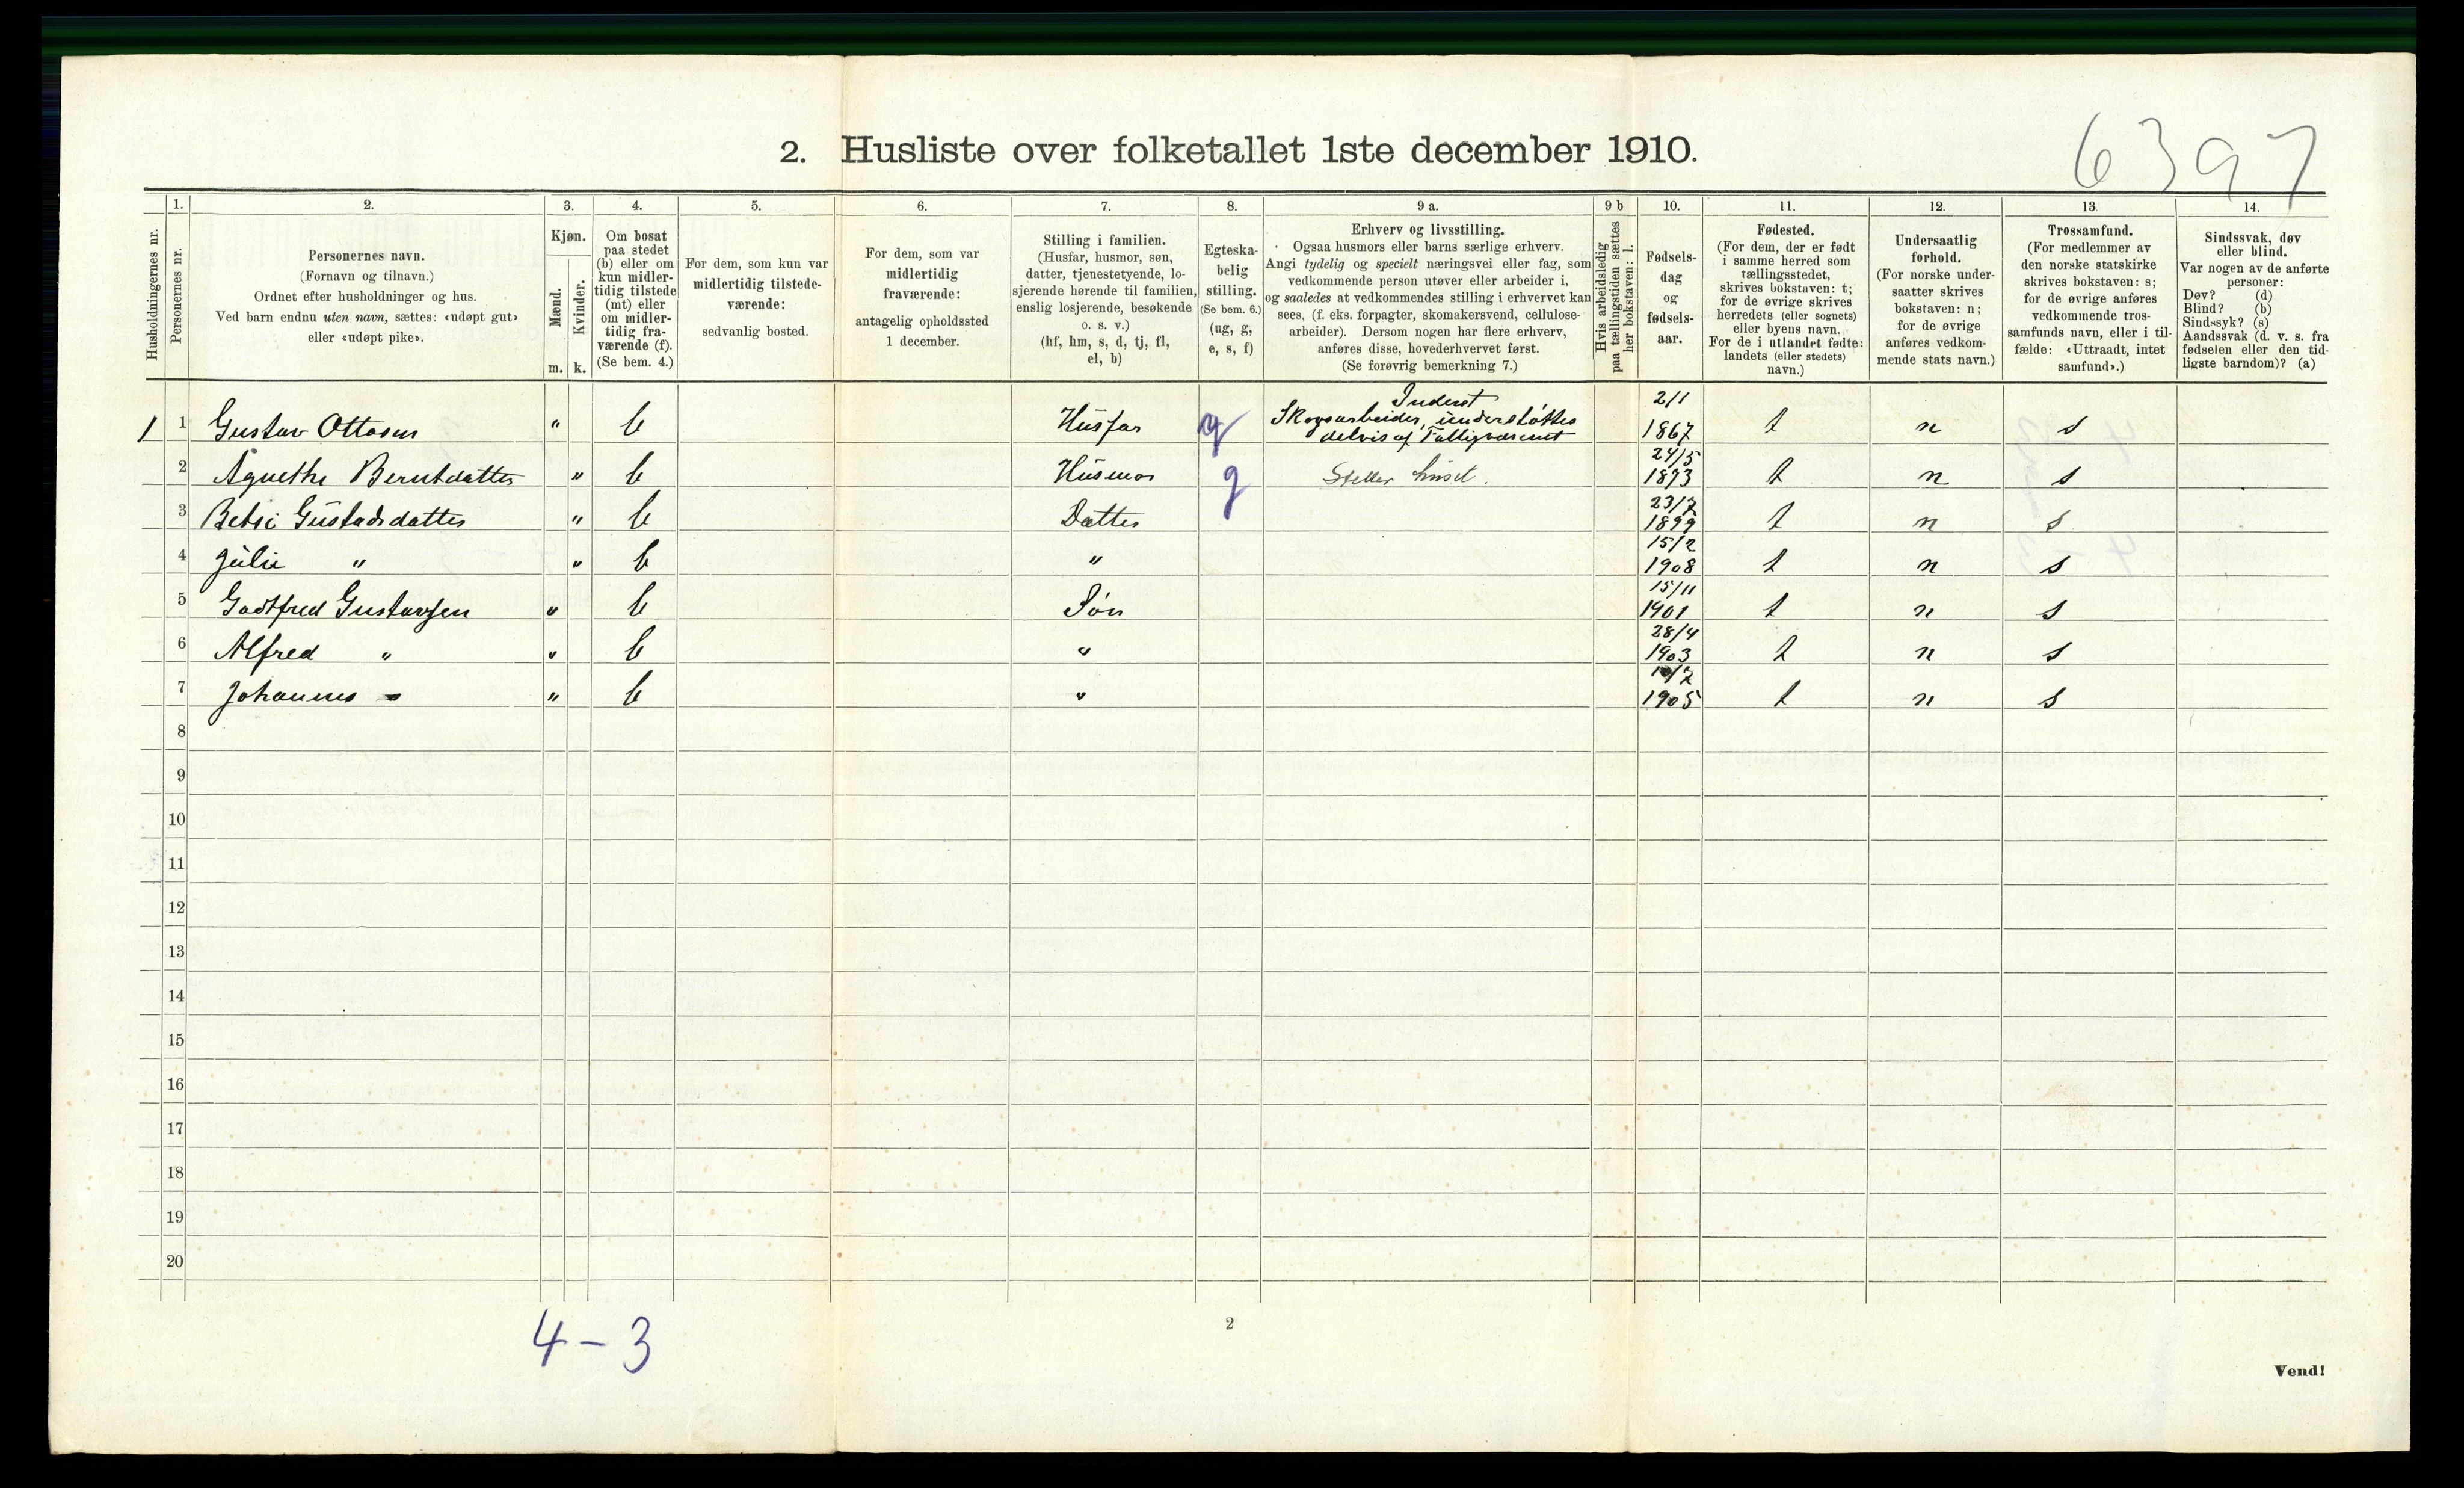 6397
2. Husliste over folketallet 1ste december 1910.
Husholdningernes nr.
1.
Personernes nr.
2.
Personernes navn.
(Fornavn og tilnavn.)
Ordnet efter husholdninger og hus.
Ved barn endnu uten navn, sættes: «udøpt gut»
eller «udøpt pike».
3.
Kjøn.
Mænd.
Kvinder.
m. k.
4.
Om bosat
paa stedet
(b) eller om
kun midler-
tidig tilstede
(mt) eller
om midler-
tidig fra-
værende (f).
(Se bem. 4.)
5.
For dem, som kun var
midlertidig tilstede-
værende:
sedvanlig bosted.
6.
For dem, som var
midlertidig
fraværende:
antagelig opholdssted
1 december.
7.
Stilling i familien.
(Husfar, husmor, søn,
datter, tjenestetyende, lo-
sjerende hørende til familien,
enslig losjerende, besøkende
o. s. v.)
(hf, hm, s, d, tj, fl,
el, b)
8.
Egteska-
belig
stilling.
(Se bem. 6.)
(ug, g,
e, s, f)
9 a.
Erhverv og livsstilling.
Ogsaa husmors eller barns særlige erhverv.
Angi tydelig og specielt næringsvei eller fag, som
vedkommende person utøver eller arbeider i,
og saaledes at vedkommendes stilling i erhvervet kan
sees, (f. eks. forpagter, skomakersvend, cellulose-
arbeider). Dersom nogen har flere erhverv,
anføres disse, hovederhvervet først.
(Se forøvrig bemerkning 7.)
9 b
Hvis arbeidsledig
paa tællingstiden sættes
her bokstaven: l.
10.
Fødsels-
dag
og
fødsels-
aar.
11.
Fødested.
(For dem, der er født
i samme herred som
tællingsstedet,
skrives bokstaven: t;
for de øvrige skrives
herredets (eller sognets)
eller byens navn.
For de i utlandet fødte:
landets (eller stedets)
navn.)
12.
Undersaatlig
forhold.
(For norske under-
saatter skrives
bokstaven: n;
for de øvrige
anføres vedkom-
mende stats navn.)
13.
Trossamfund.
(For medlemmer av
den norske statskirke
skrives bokstaven: s;
for de øvrige anføres
vedkommende tros-
samfunds navn, eller i til-
fælde: «Uttraadt, intet
samfund».)
14.
Sindssvak, døv
eller blind.
Var nogen av de anførte
personer:
Døv? (d)
Blind? (b)
Sindssyk? (s)
Aandssvak (d. v. s. fra
fødselen eller den tid-
ligste barndom)? (a)
Inderst 2/1
1 1 Gustav Ottosen " b Husfar g Skogsarbeider, understøttes delvis af Fattigvæsenet 1867 t n s
24/5
2 Agnethe Berntdatter " b Husmor g Steller huset. 1873 t n s
23/7
3 Betsi Gustavsdatter " b Datter 1899 t n s
15/2
4 Julie " " b " 1908 t n s
15/11
5 Godtfred Gustavsen " b Søn 1901 t n s
28/4
6 Alfred " " b " 1903 t n s
7 Johannes " " b " 1905 t n s
8
9
10
11
12
13
14
15
16
17
18
19
20
4 - 3
2
Vend!